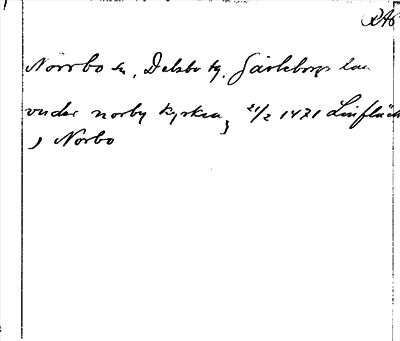 RAp
Norrbo sn, Delsbo tg. Gävleborgs län
vnder norby kyrkea, 21/2 1471 Linflück
, Norbo